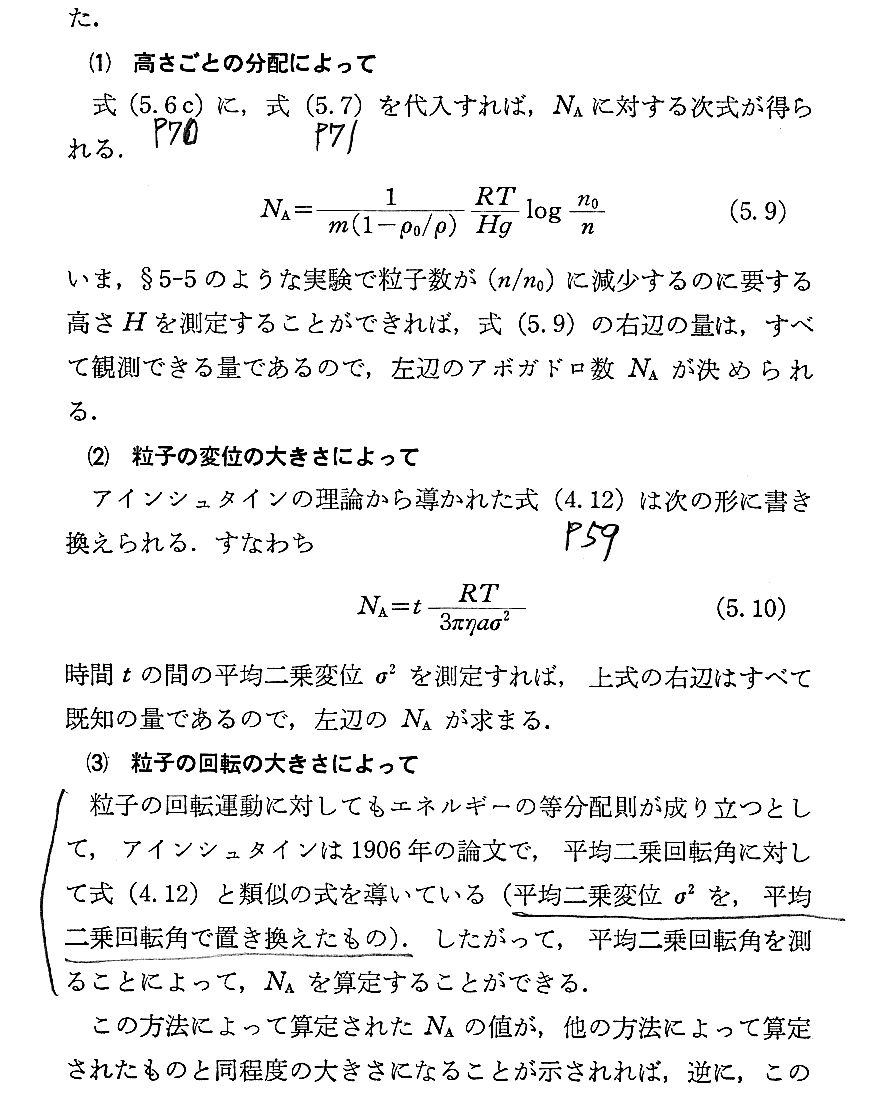 た.
(1) 高さごとの分配によって
式 (5.6c) に, 式 (5.7) を代入すれば, N_A に対する次式が得ら
P70 P71
れる.
N_A = \frac{1}{m(1-ρ_0/ρ)} \frac{RT}{Hg} log \frac{n_0}{n} (5.9)
いま, §5-5 のような実験で粒子数が (n/n_0) に減少するのに要する
高さ H を測定することができれば, 式 (5.9) の右辺の量は, すべ
て観測できる量であるので, 左辺のアボガドロ数 N_A が決められ
る.
(2) 粒子の変位の大きさによって
アインシュタインの理論から導かれた式 (4.12) は次の形に書き
換えられる. すなわち
P59
N_A = t \frac{RT}{3πηaσ^2} (5.10)
時間 t の間の平均二乗変位 σ^2 を測定すれば, 上式の右辺はすべて
既知の量であるので, 左辺の N_A が求まる.
(3) 粒子の回転の大きさによって
粒子の回転運動に対してもエネルギーの等分配則が成り立つとし
て, アインシュタインは 1906 年の論文で, 平均二乗回転角に対し
て式 (4.12) と類似の式を導いている (平均二乗変位 σ^2 を, 平均
二乗回転角で置き換えたもの). したがって, 平均二乗回転角を測
ることによって, N_A を算定することができる.
この方法によって算定された N_A の値が, 他の方法によって算定
されたものと同程度の大きさになることが示されれば, 逆に, この